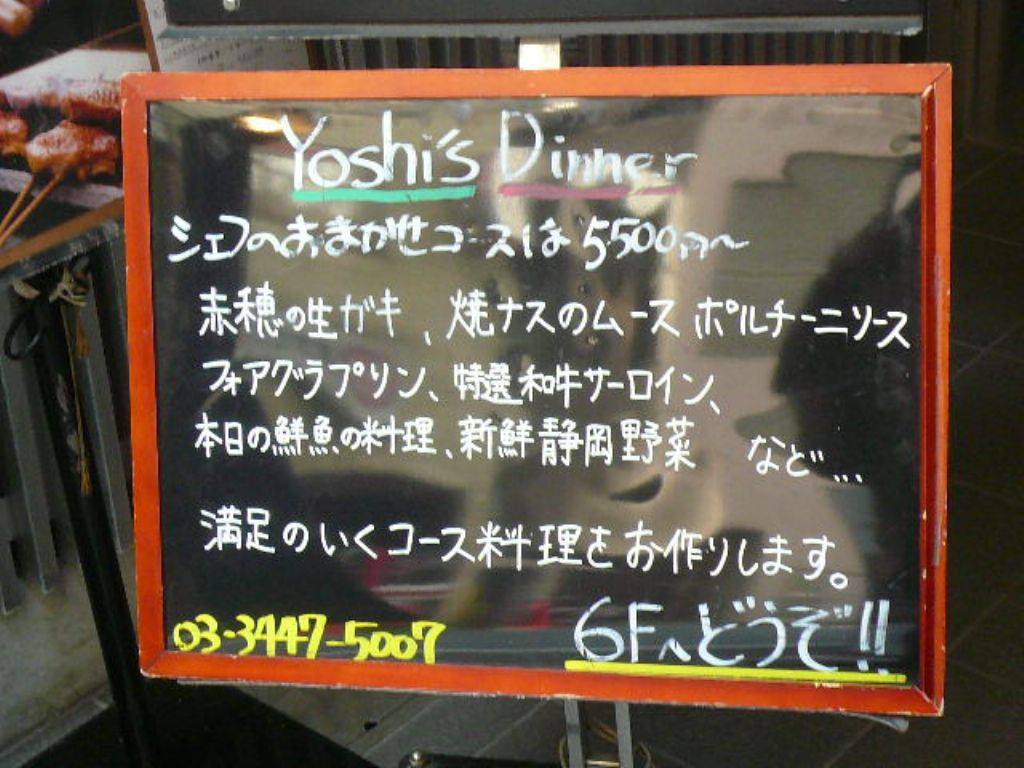 Yoshi's Dinner
シェフのおまかせコースは5500円〜
赤穂の生ガキ、焼ナスのムース ポルチーニソース
フォアグラプリン、特選和牛サーロイン、
本日の鮮魚の料理、新鮮静岡野菜 など...
満足のいくコース料理をお作りします。
03-3447-5007
6Fへどうぞ!!